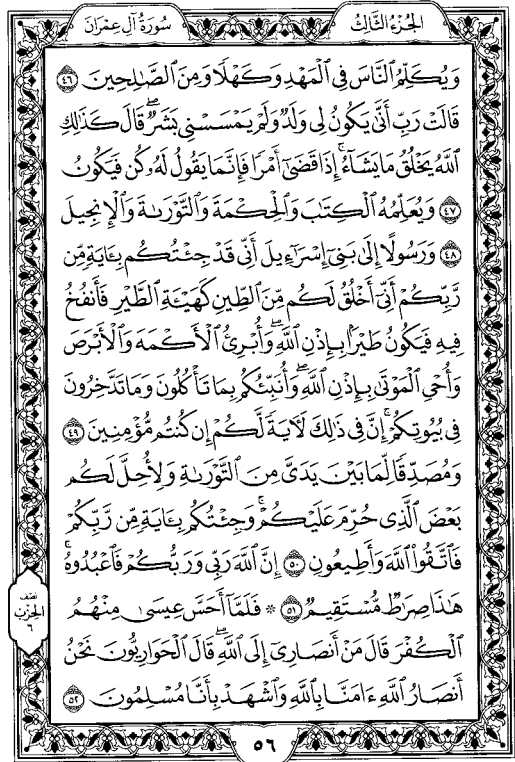 سُورَةُ آلِ عِمْرَانَ الجُزْءُ الثَّالِثُ
وَيُكَلِّمُ ٱلنَّاسَ فِي ٱلْمَهْدِ وَكَهْلًا وَمِنَ ٱلصَّٰلِحِينَ ٤٦
قَالَتْ رَبِّ أَنَّىٰ يَكُونُ لِي وَلَدٌ وَلَمْ يَمْسَسْنِي بَشَرٌۖ قَالَ كَذَٰلِكِ
ٱللَّهُ يَخْلُقُ مَا يَشَآءُۚ إِذَا قَضَىٰٓ أَمْرًا فَإِنَّمَا يَقُولُ لَهُۥ كُن فَيَكُونُ
٤٧ وَيُعَلِّمُهُ ٱلْكِتَٰبَ وَٱلْحِكْمَةَ وَٱلتَّوْرَىٰةَ وَٱلْإِنجِيلَ
٤٨ وَرَسُولًا إِلَىٰ بَنِيٓ إِسْرَٰٓءِيلَ أَنِّي قَدْ جِئْتُكُم بِـَٔايَةٍ مِّن
رَّبِّكُمْ أَنِّيٓ أَخْلُقُ لَكُم مِّنَ ٱلطِّينِ كَهَيْـَٔةِ ٱلطَّيْرِ فَأَنفُخُ
فِيهِ فَيَكُونُ طَيْرًۢا بِإِذْنِ ٱللَّهِۖ وَأُبْرِئُ ٱلْأَكْمَهَ وَٱلْأَبْرَصَ
وَأُحْيِ ٱلْمَوْتَىٰ بِإِذْنِ ٱللَّهِۖ وَأُنَبِّئُكُم بِمَا تَأْكُلُونَ وَمَا تَدَّخِرُونَ
فِي بُيُوتِكُمْۚ إِنَّ فِي ذَٰلِكَ لَـَٔايَةً لَّكُمْ إِن كُنتُم مُّؤْمِنِينَ ٤٩
وَمُصَدِّقًا لِّمَا بَيْنَ يَدَيَّ مِنَ ٱلتَّوْرَىٰةِ وَلِأُحِلَّ لَكُم
بَعْضَ ٱلَّذِي حُرِّمَ عَلَيْكُمْۚ وَجِئْتُكُم بِـَٔايَةٍ مِّن رَّبِّكُمْ
فَٱتَّقُوا۟ ٱللَّهَ وَأَطِيعُونِ ٥٠ إِنَّ ٱللَّهَ رَبِّي وَرَبُّكُمْ فَٱعْبُدُوهُۚ
هَٰذَا صِرَٰطٌ مُّسْتَقِيمٌ ٥١ ۞ فَلَمَّآ أَحَسَّ عِيسَىٰ مِنْهُمُ
ٱلْكُفْرَ قَالَ مَنْ أَنصَارِيٓ إِلَى ٱللَّهِۖ قَالَ ٱلْحَوَارِيُّونَ نَحْنُ
أَنصَارُ ٱللَّهِ ءَامَنَّا بِٱللَّهِ وَٱشْهَدْ بِأَنَّا مُسْلِمُونَ ٥٢
نصف
الحزب
٦
٥٦